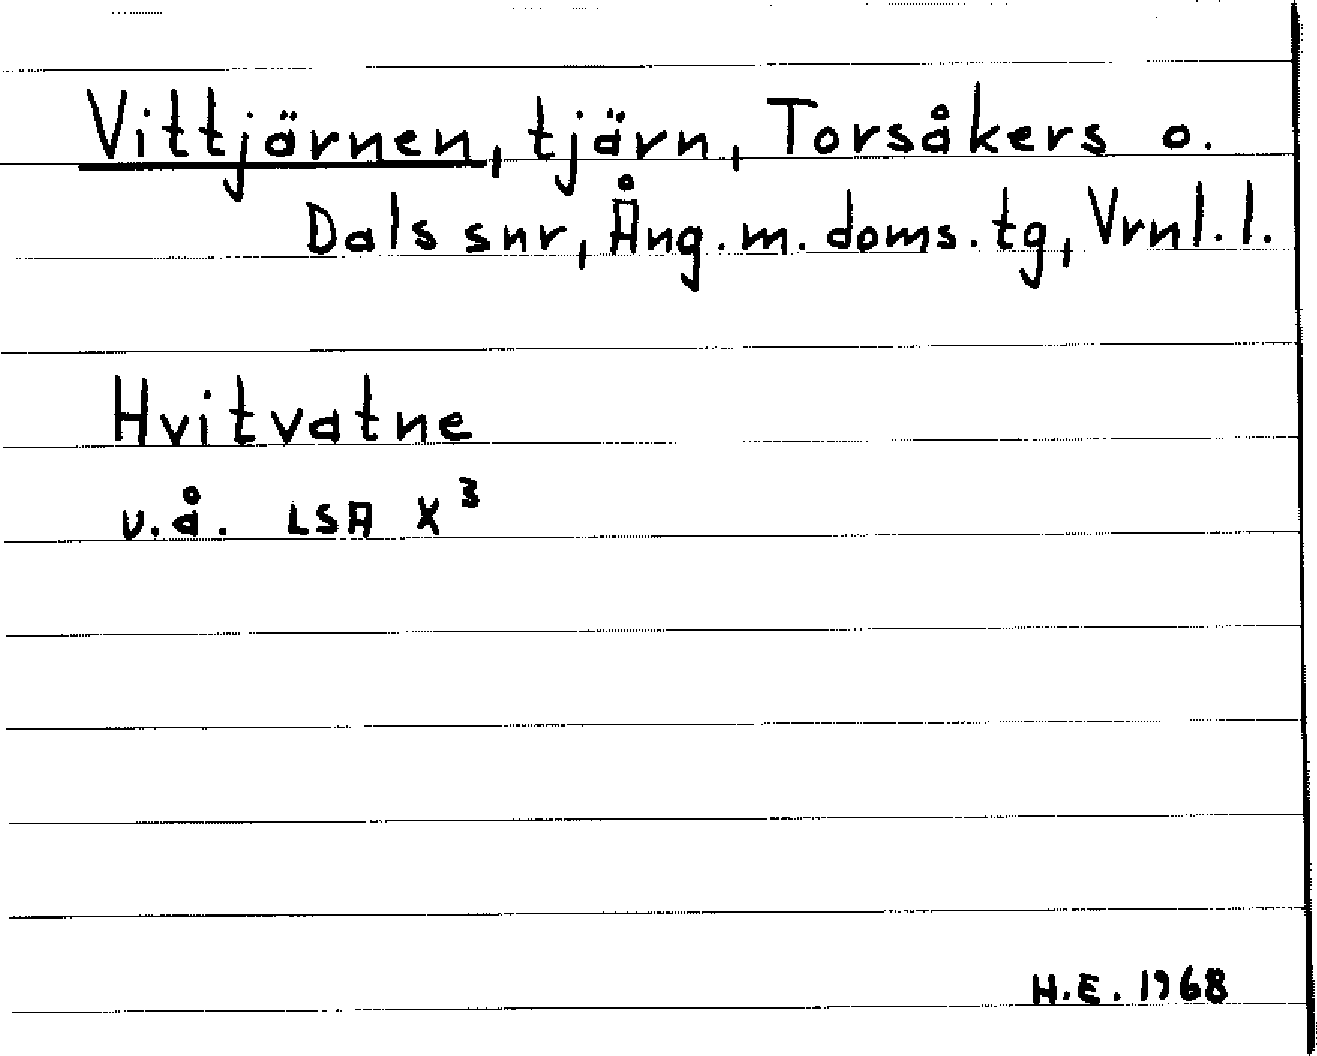 Vittjärnen, tjärn, Torsåkers o.
Dals snr, Ång. m. doms. tg, Vrnl. l.
Hvitvatne
u.å. LSA X³
H.E. 1968